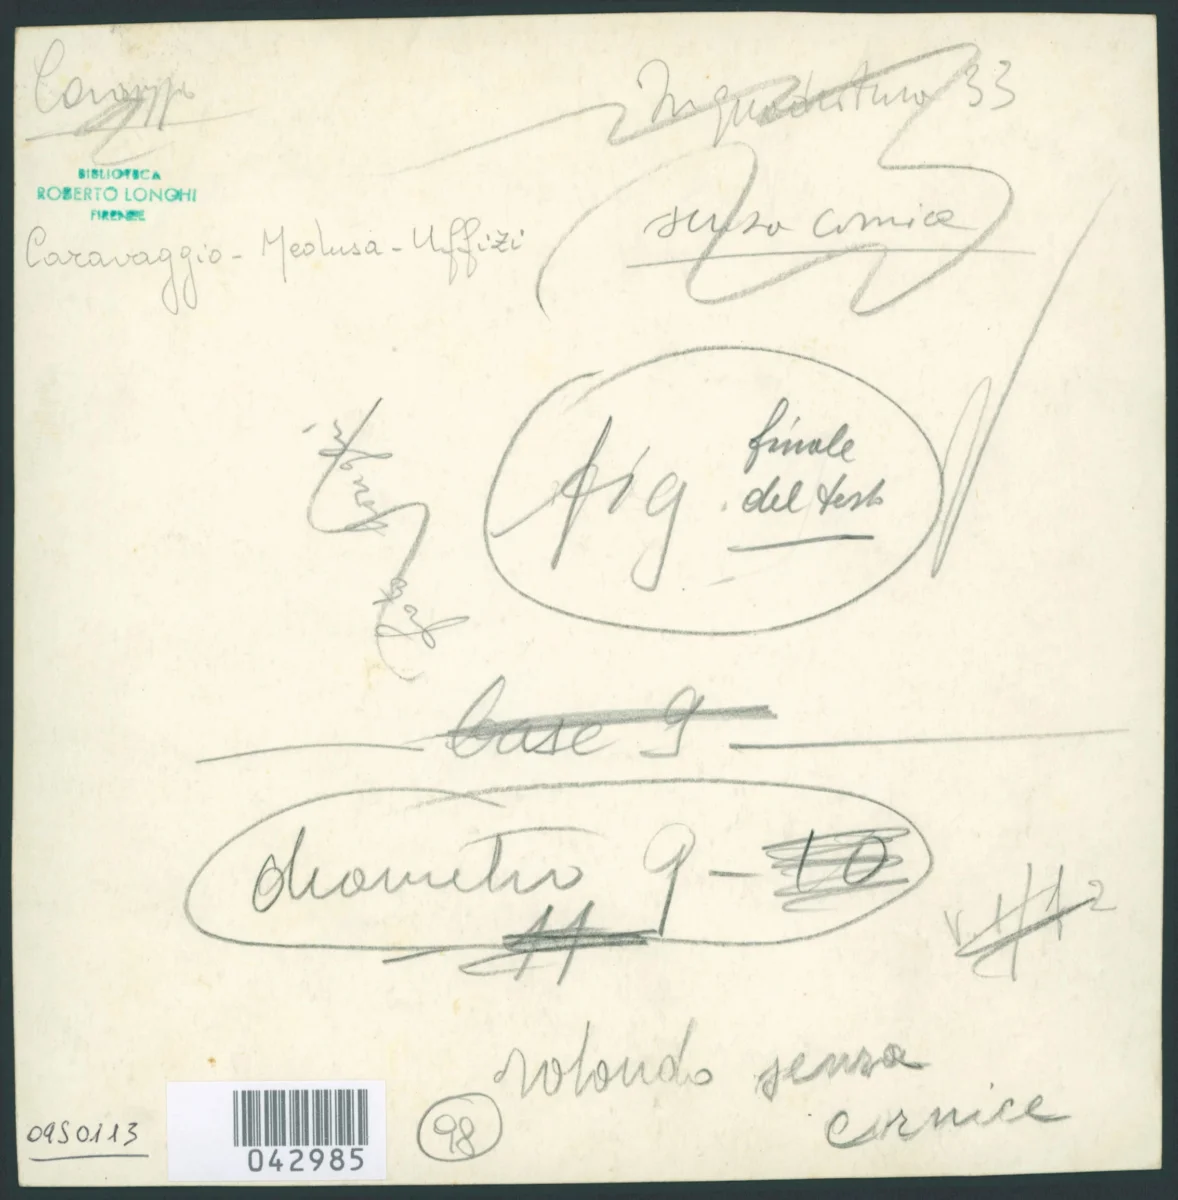 Inquadratura 33
BIBLIOTECA
ROBERTO LONGHI
FIRENZE
senza cornice
Caravaggio - Medusa - Uffizi
fig.
finale
del testo
base 9
diametro 9 - 10
11
rotondo senza
cornice
0950113
042985
98